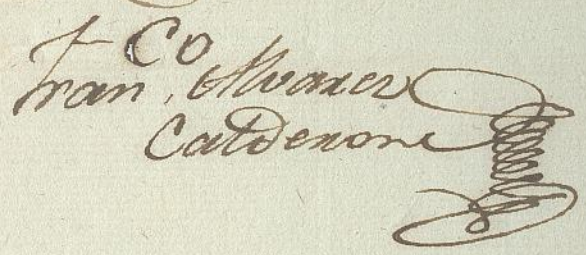 Fran.co Alvarez
Calderone